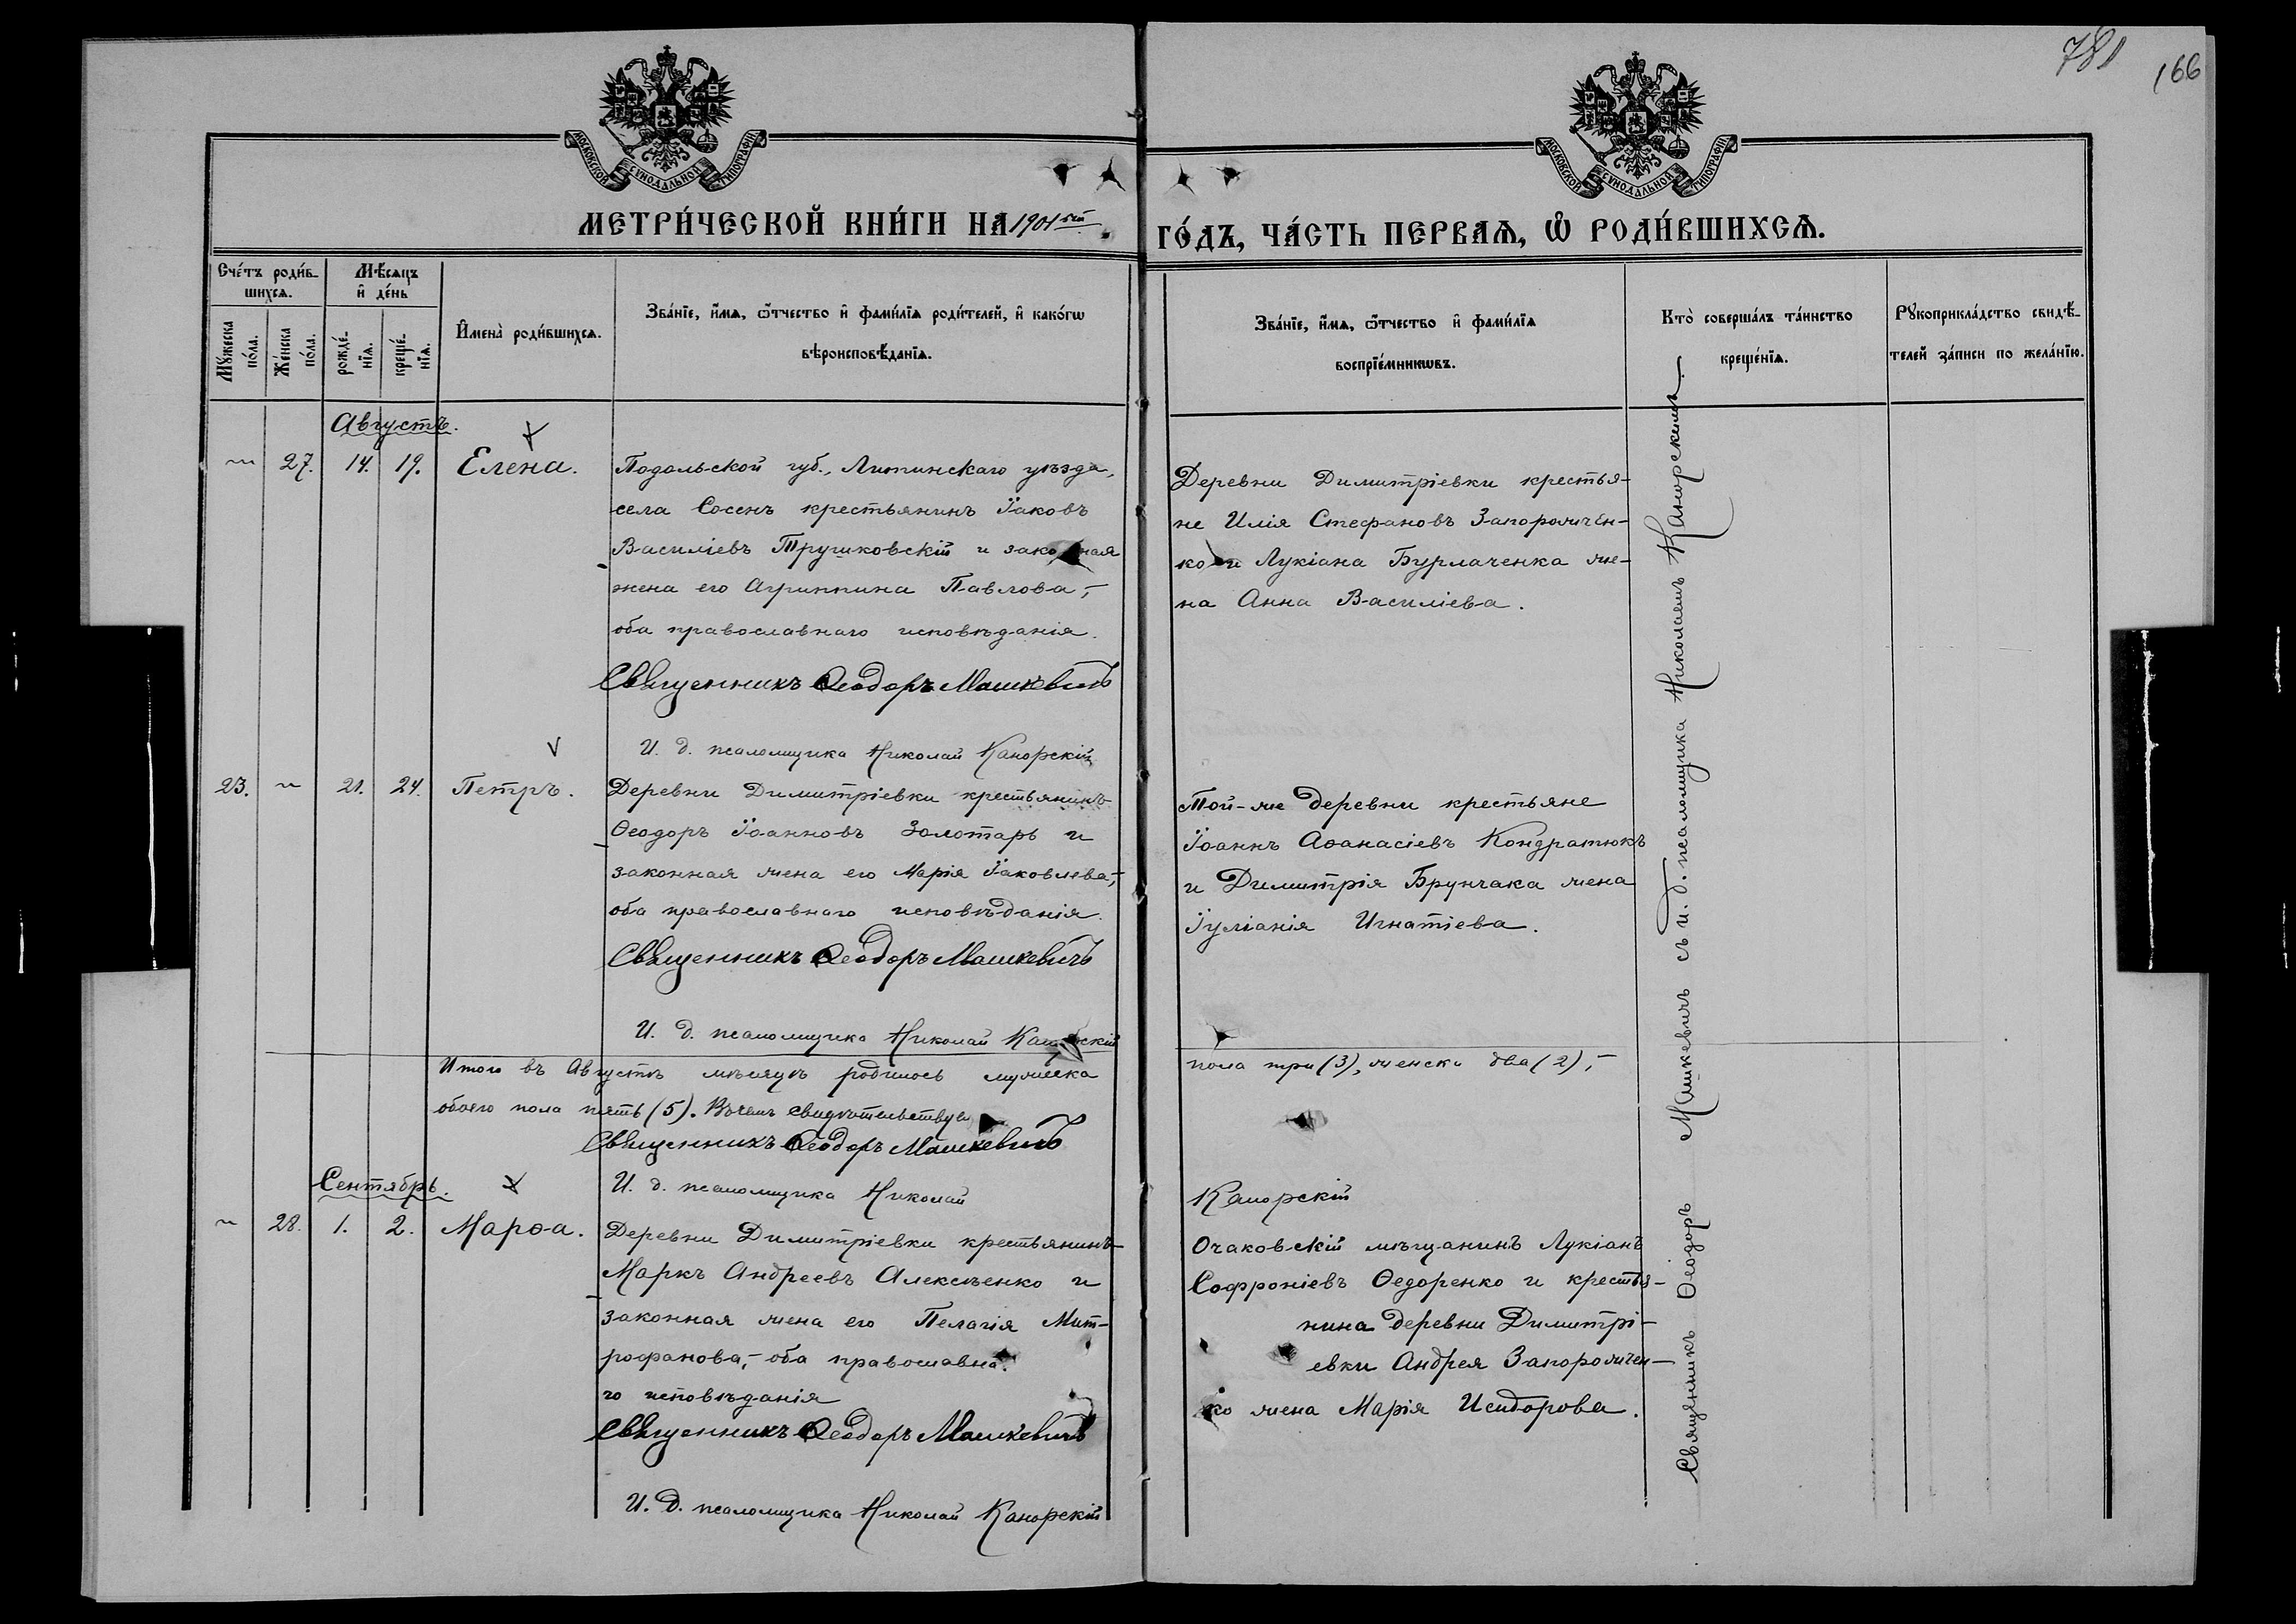 781
166
МОСКОВСКОЙ СѴНОДАЛЬНОЙ ТИПОГРАФІИ
МОСКОВСКОЙ СѴНОДАЛЬНОЙ ТИПОГРАФІИ
МЕТРИ́ЧЕСКОЙ КНИ́ГИ НА 1901ый
ГО́ДЪ, ЧА́СТЬ ПЕРВАѦ, Ѽ РОДИ́ВШИХСѦ.
Сче́тъ роди́в-
шихсѧ.
Мѣ́сѧцъ
и҆ де́нь
Мꙋ́жеска
по́ла.
Же́нска
по́ла.
рожде́-
нїѧ.
креще́-
нїѧ.
И҆мена̀ роди́вшихсѧ.
Зва́нїе, и҆́мѧ, ѻ҆́тчество и҆ фами́лїѧ роди́телей, и҆ како́гѡ
вѣроисповѣ́данїѧ.
Зва́нїе, и҆́мѧ, ѻ҆́тчество и҆ фами́лїѧ
воспрїе́мникѡвъ.
Кто̀ соверша́лъ та́инство
креще́нїѧ.
Рꙋкоприкла́дство свидѣ́-
телей за́писи по жела́нїю.
Августъ.
27. 14. 19. Елена.
Подольской губ., Литинскаго уѣзда,
села Сосенъ крестьянинъ Іаковъ
Василіевъ Трушковскій и законная
жена его Агриппина Павлова,–
оба православнаго исповѣданія.
Священникъ Ѳеодоръ Машкевичъ
И. д. псаломщика Николай Канорскій
Деревни Димитріевки крестья-
не Илія Стефановъ Запорожчен-
ко и Лукіана Бурлаченка же-
на Анна Василіева.
23. 21. 24. Петръ.
Деревни Димитріевки крестьянинъ
Ѳеодоръ Іоанновъ Золотарь и
законная жена его Марія Іаковлева,–
оба православнаго исповѣданія.
Священникъ Ѳеодоръ Машкевичъ
И. д. псаломщика Николай Канорскій
Той-же деревни крестьяне
Іоаннъ Аѳанасіевъ Кондратюкъ
и Димитрія Брунчака жена
Іуліанія Игнатіева.
Итого въ Августѣ мѣсяцѣ родилось мужеска
пола три (3), женска два (2),–
обоего пола пять (5). Въ чемъ свидѣтельствуемъ
Священникъ Ѳеодоръ Машкевичъ
И. д. псаломщика Николай
Канорскій
Сентябрь.
28. 1. 2. Марѳа.
Деревни Димитріевки крестьянинъ
Маркъ Андреевъ Алексѣенко и
законная жена его Пелагія Мит-
рофанова,– оба православна-
го исповѣданія
Священникъ Ѳеодоръ Машкевичъ
И. д. псаломщика Николай Канорскій
Очаковскій мѣщанинъ Лукіанъ
Софроніевъ Ѳедоренко и крестья-
нина деревни Димитрі-
евки Андрея Запорожчен-
ко жена Марія Исидорова.
Священникъ Ѳеодоръ Машкевичъ съ и. д. псаломщика Николаемъ Канорскимъ.